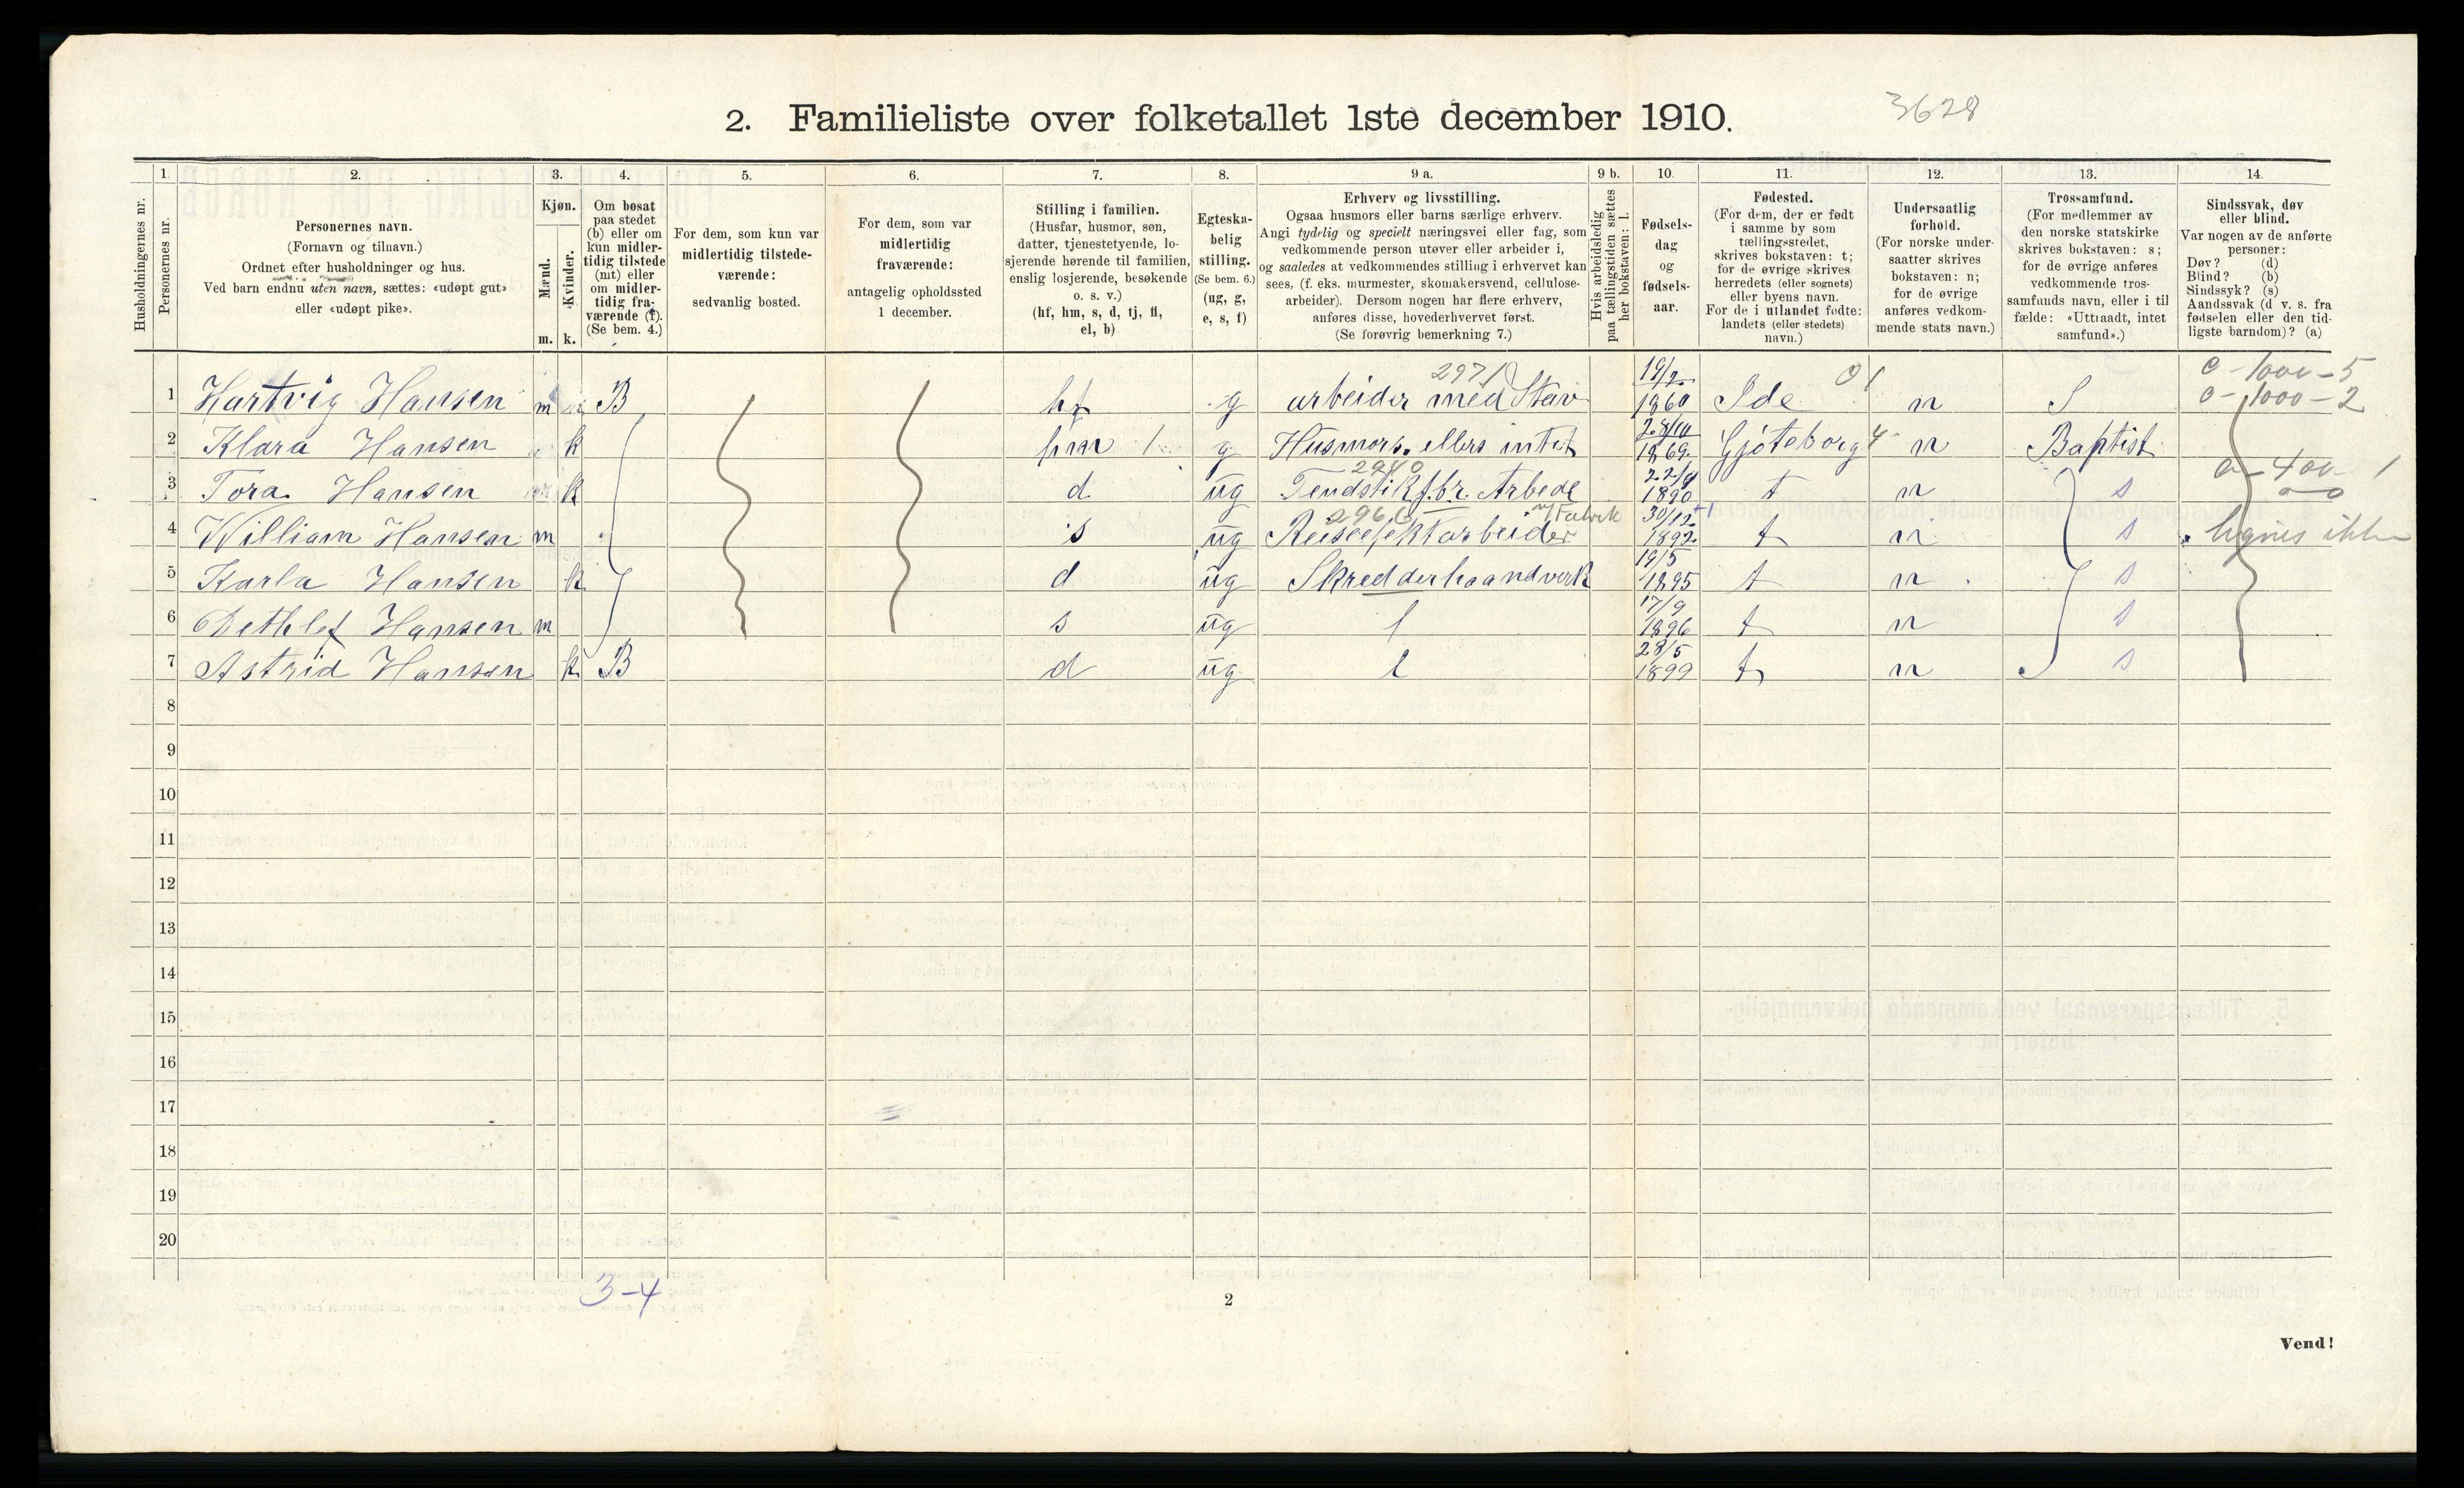 2. Familieliste over folketallet 1ste december 1910.
3628
1. 2. 3. 4. 5. 6. 7. 8. 9 a. 9 b. 10. 11. 12. 13. 14.
Husholdningernes nr.
Personernes nr.
Personernes navn.
(Fornavn og tilnavn.)
Ordnet efter husholdninger og hus.
Ved barn endnu uten navn, sættes: «udøpt gut»
eller «udøpt pike».
Kjøn.
Mænd.
Kvinder.
m. k.
Om bosat
paa stedet
(b) eller om
kun midler-
tidig tilstede
(mt) eller
om midler-
tidig fra-
værende (f).
(Se bem. 4.)
For dem, som kun var
midlertidig tilstede-
værende:
sedvanlig bosted.
For dem, som var
midlertidig
fraværende:
antagelig opholdssted
1 december.
Stilling i familien.
(Husfar, husmor, søn,
datter, tjenestetyende, lo-
sjerende hørende til familien,
enslig losjerende, besøkende
o. s. v.)
(hf, hm, s, d, tj, fl,
el, b)
Egteska-
belig
stilling.
(Se bem. 6.)
(ug, g,
e, s, f)
Erhverv og livsstilling.
Ogsaa husmors eller barns særlige erhverv.
Angi tydelig og specielt næringsvei eller fag, som
vedkommende person utøver eller arbeider i,
og saaledes at vedkommendes stilling i erhvervet kan
sees, (f. eks. murmester, skomakersvend, cellulose-
arbeider). Dersom nogen har flere erhverv,
anføres disse, hovederhvervet først.
(Se forøvrig bemerkning 7.)
Hvis arbeidsledig
paa tællingstiden sættes
her bokstaven: l.
Fødsels-
dag
og
fødsels-
aar.
Fødested.
(For dem, der er født
i samme by som
tællingsstedet,
skrives bokstaven: t;
for de øvrige skrives
herredets (eller sognets)
eller byens navn.
For de i utlandet fødte:
landets (eller stedets)
navn.)
Undersaatlig
forhold.
(For norske under-
saatter skrives
bokstaven: n;
for de øvrige
anføres vedkom-
mende stats navn.)
Trossamfund.
(For medlemmer av
den norske statskirke
skrives bokstaven: s;
for de øvrige anføres
vedkommende tros-
samfunds navn, eller i til
fælde: «Uttraadt, intet
samfund».)
Sindssvak, døv
eller blind.
Var nogen av de anførte
personer:
Døv? (d)
Blind? (b)
Sindssyk? (s)
Aandssvak (d v. s. fra
fødselen eller den tid-
ligste barndom)? (a)
2971 19/2 01 c-1000-5
1 Hartvig Hansen m B hf g arbeider med Stav 1860 Ide n S 0-1000-2
2 Klara Hansen k hm 1 g Husmors. ellers intet 28/10 1869 Gjøteborg 4 n Baptist
2940 a-400-1
3 Tora Hansen k d ug Tendstikfbr. Arbede 22/9 1890 t n s
2966 v/Fabrik
4 William Hansen m s ug Reiseefektarbeider 30/12 1892 t n s lignes ikke
5 Karla Hansen k d ug Skredderhaandverk 19/5 1895 t n s
6 Dethlef Hansen m s ug l 17/9 1896 t n s
7 Astrid Hansen k B d ug l 28/5 1899 t n s
8
9
10
11
12
13
14
15
16
17
18
19
20
3-4
2
Vend!